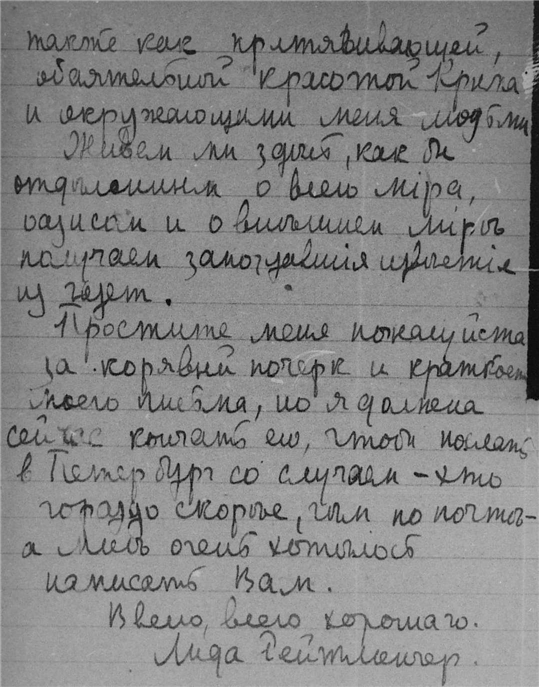 также как притягивающей,
обаятельной красотой Крыма
и окружающими меня людьми
Живем мы здесь, как бы
отдыленныи о всего мiра,
оазисом и о внѣшнем мiрѣ
получаем запоздавшiя извѣстiя
из газет.
Простите меня пожалуйста
за корявый почерк и краткость
моего письма, но я должна
сейчас кончать его, чтобы послать
в Петербург со случаем – это
гораздо скорѣе, чѣм по почтѣ –
а мнѣ очень хотѣлось
написать Вам.
Всего, всего хорошаго.
Лида